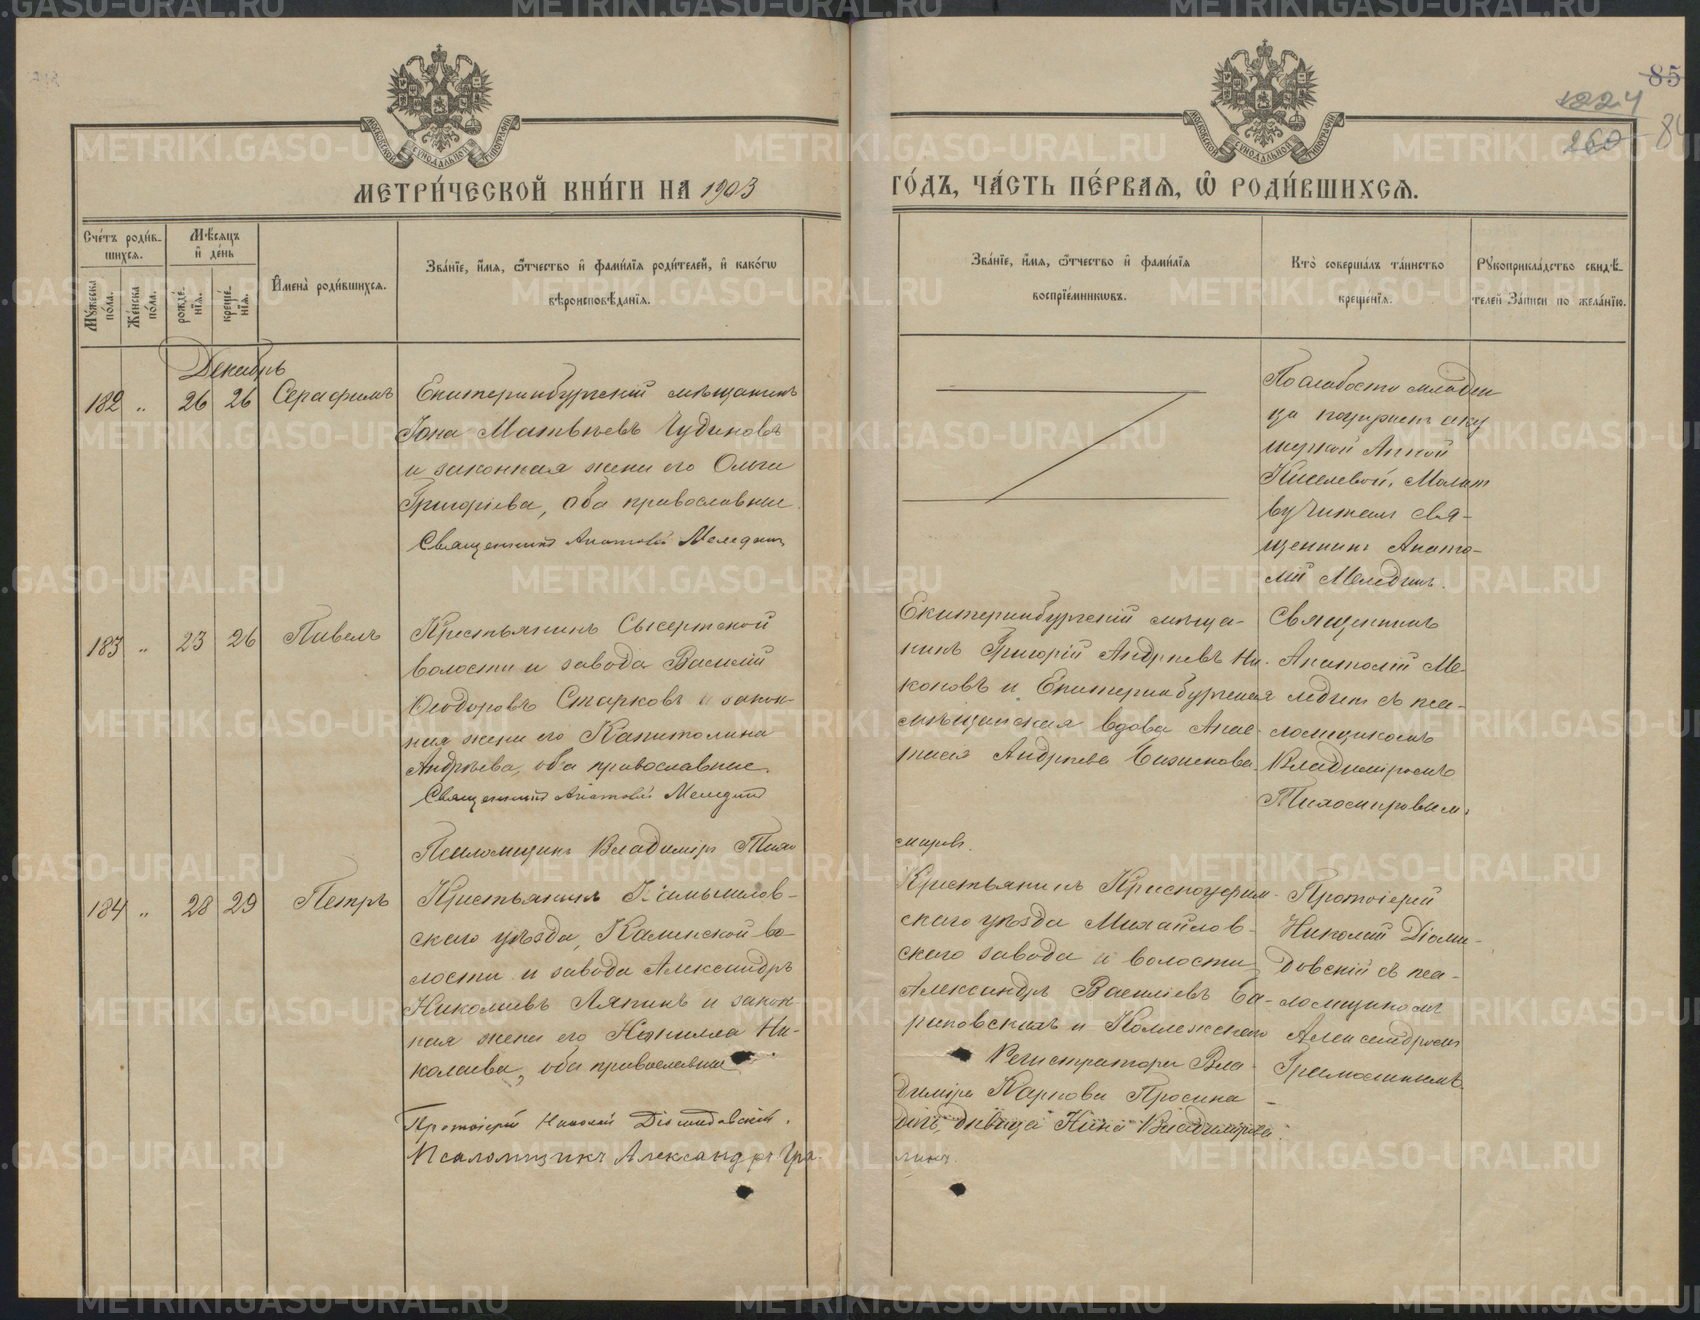 85
1224
260
84
МЕТРИ́ЧЕСКОЙ КНИ́ГИ НА 1903
ГО́ДЪ, ЧА́СТЬ ПЕ́РВАЯ, Ѽ РОДИ́ВШИХСЯ.
Сче́тъ роди́в-
шихся.
Мѣ́сяцъ
и҆ де́нь
Му́жеска по́ла.
Же́нска по́ла.
рожде́-
нїя.
креще́-
нїя.
И҆мена̀ роди́вшихся.
Зва́нїе, и҆́мя, ѻ҆́тчество и҆ фами́лїя роди́телей, и҆ како́гѡ
вѣроисповѣ́данїя.
Зва́нїе, и҆́мя, ѻ҆́тчество и҆ фами́лїя
воспрїе́мникѡвъ.
Кто̀ соверша́лъ та́инство
креще́нїя.
Рꙋкоприкла́дство свидѣ́-
телей за́писи по жела́нїю.
Декабрь
182 „ 26 26 Серафимъ
Екатеринбургскій мѣщанинъ
Іона Матвѣевъ Чудиновъ
и законная жена его Ольга
Григоріева, оба православные.
Священникъ Анатолій Мелединъ
По слабости младен
ца погружен аку
шеркой Анной
Киселевой, Молит
ву читалъ свя-
щенникъ Анато-
лій Меледин.
183 „ 23 26 Павелъ
Крестьянинъ Сысертской
волости и завода Василій
Ѳеодоровъ Старковъ и закон-
ная жена его Капитолина
Андрѣева, оба православные.
Священникъ Анатолій Меледин
Псаломщикъ Владиміръ Тихо
миров.
Екатеринбургскій мѣща-
нинъ Григорій Андреевъ Ни-
коновъ и Екатеринбургская
мѣщанская вдова Анас-
тасія Андреева
Священникъ
Анатолій Ме-
ледин съ пса-
ломщикомъ
Владиміромъ
Тихомировым.
184 „ 28 29 Петръ
Крестьянинъ Камышлов-
скаго уѣзда, Каменской во-
лости и завода Александръ
Николаевъ Ляпинъ и закон-
ная жена его Неонилла Ни-
колаева, оба православные
Протоіерей Николай Діомидовскій.
Псаломщикъ Александръ Гра-
Крестьянинъ Красноуфим-
скаго уѣзда Михайлов-
скаго завода и волости
Александръ Василіевъ Ба-
рановскихъ и Коллежскаго
Регистратора Вла-
диміра Карпова
дѣвица Нина Владимірова.
Протоіерей
Николай Діоми-
довскій съ пса-
ломщикомъ
Александромъ
METRIKI.GASO-URAL.RU